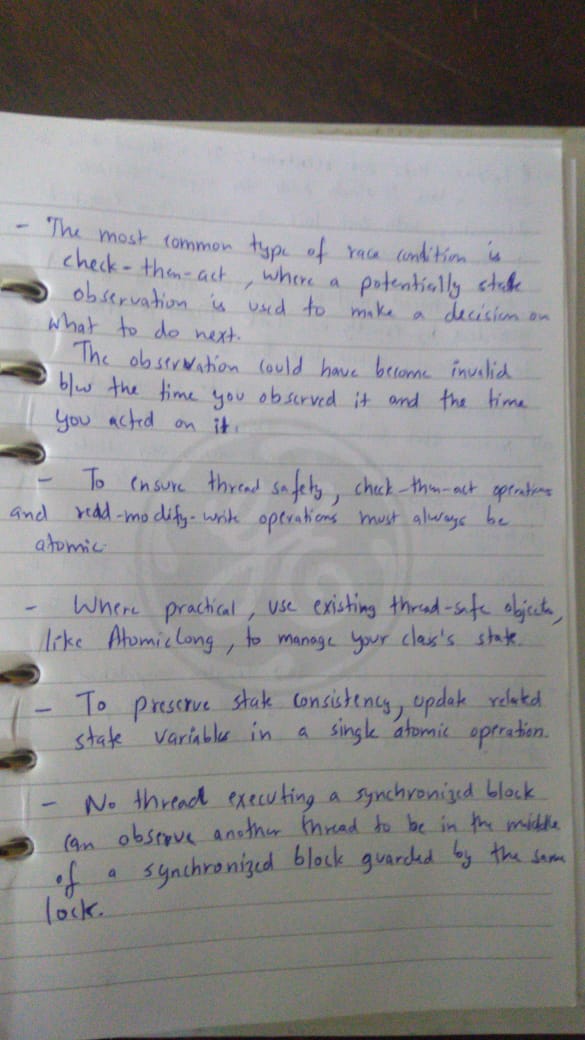 - The most common type of race condition is
check-then-act, where a potentially stale
observation is used to make a decision on
what to do next.
The observation could have become invalid
b/w the time you observed it and the time
you acted on it.
- To ensure thread safety, check-then-act operations
and read-modify-write operations must always be
atomic.
- Where practical, use existing thread-safe objects,
like AtomicLong, to manage your class's state.
- To preserve state consistency, update related
state variables in a single atomic operation.
- No thread executing a synchronized block
can observe another thread to be in the middle
of a synchronized block guarded by the same
lock.